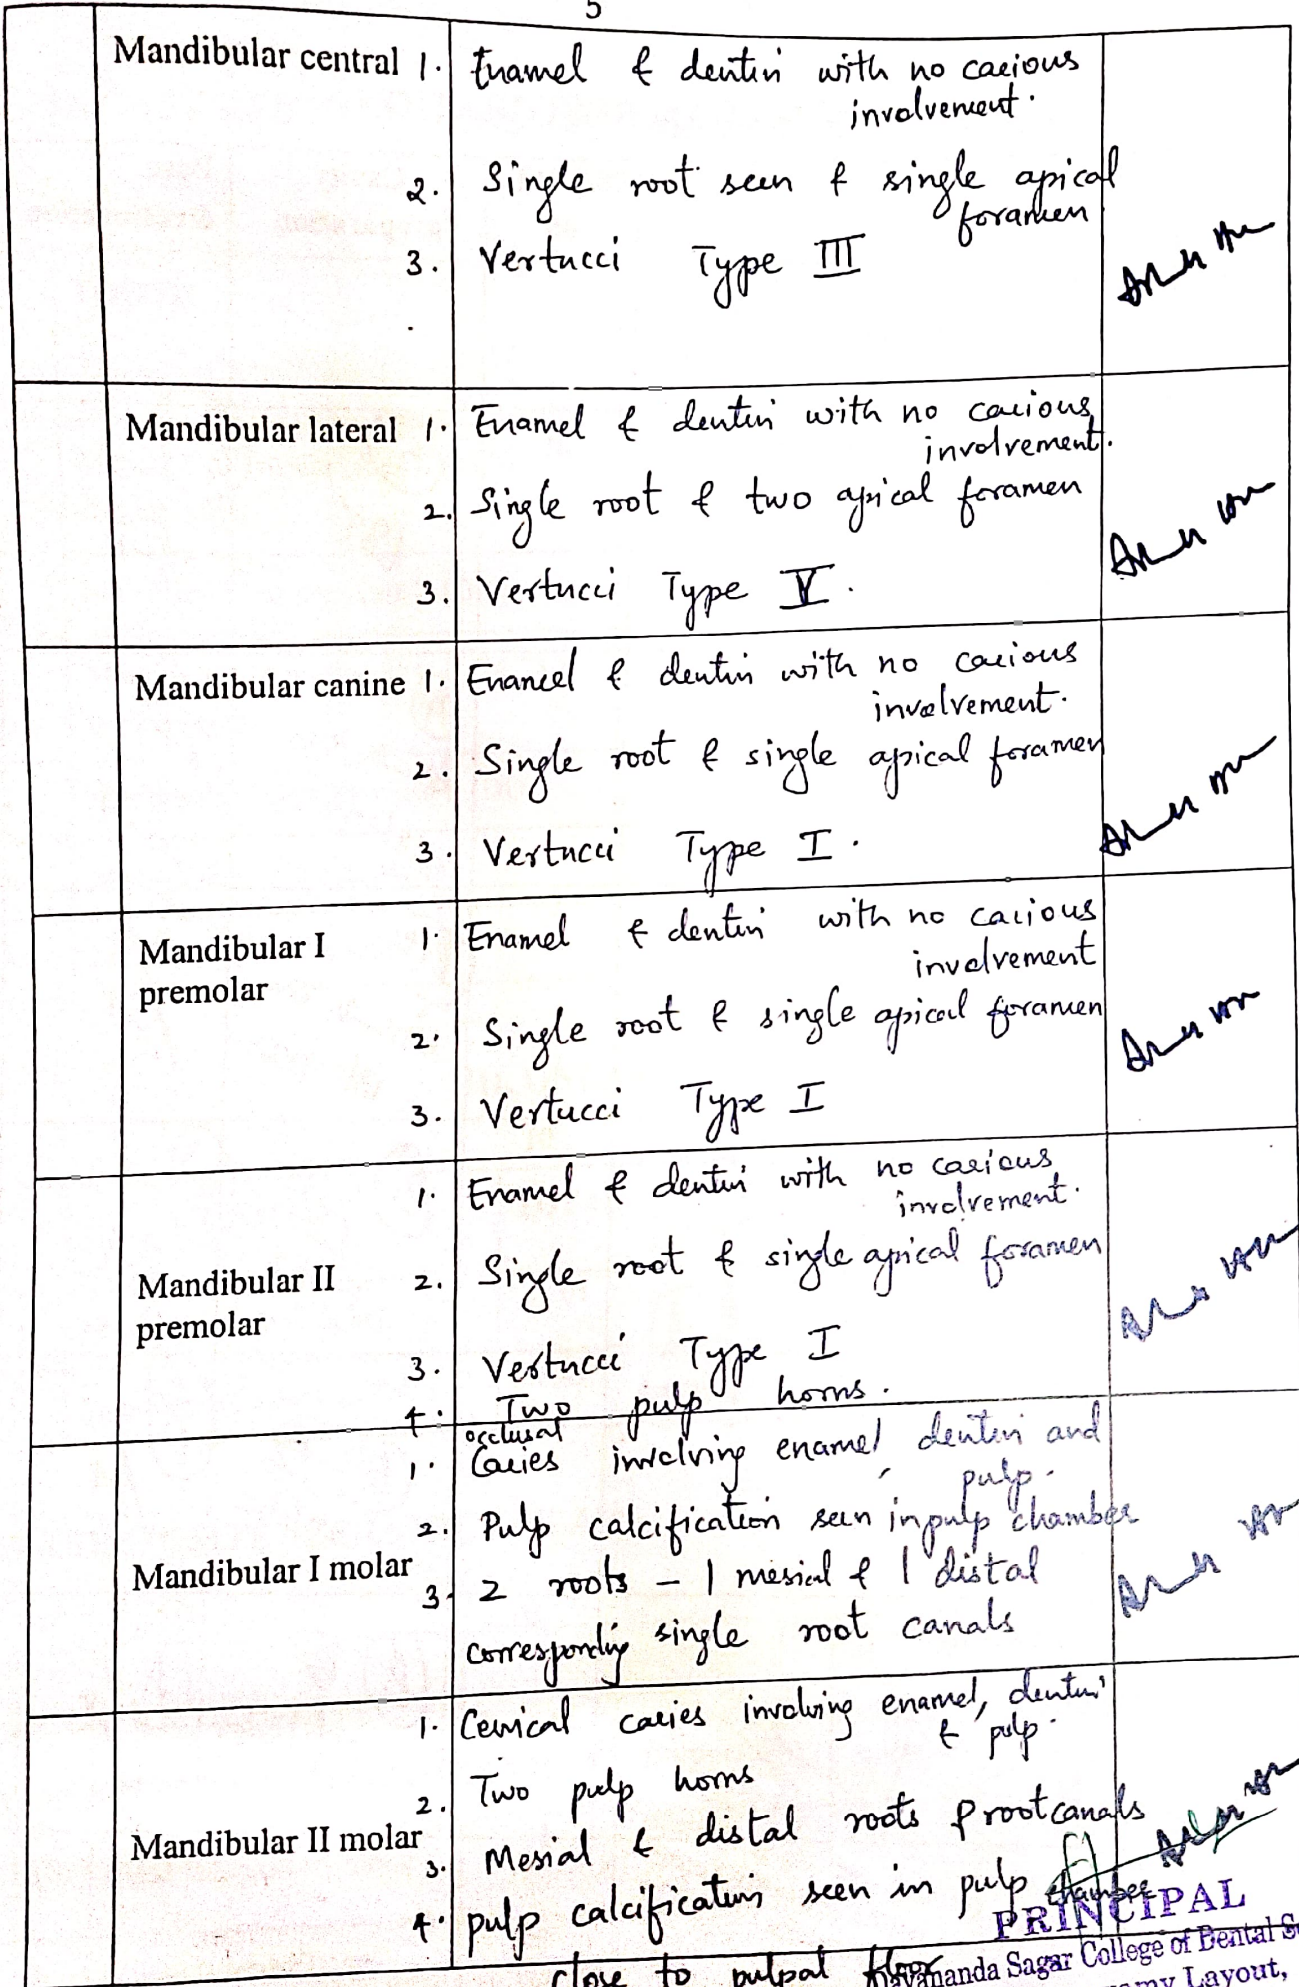 5
Mandibular central 1. Enamel & dentin with no carious
involvement.
2. Single root seen & single apical
foramen
3. Vertucci Type III
Mandibular lateral 1. Enamel & dentin with no carious
involvement.
2. Single root & two apical foramen
3. Vertucci Type V.
Mandibular canine 1. Enamel & dentin with no carious
involvement.
2. Single root & single apical foramen
3. Vertucci Type I.
Mandibular I
premolar
1. Enamel & dentin with no carious
involvement
2. Single root & single apical foramen
3. Vertucci Type I
Mandibular II
premolar
1. Enamel & dentin with no carious
involvement.
2. Single root & single apical foramen
3. Vertucci Type I
4. Two pulp horns.
Mandibular I molar
occlusal
1. Caries involving enamel, dentin and
pulp.
2. Pulp calcification seen in pulp chamber
3. 2 roots - 1 mesial & 1 distal
corresponding single root canals
Mandibular II molar
1. Cervical caries involving enamel, dentin
& pulp.
2. Two pulp horns
3. Mesial & distal roots & root canals
4. pulp calcification seen in pulp chamber
close to pulpal floor
PRINCIPAL
Sagar College of Dental
Layout,